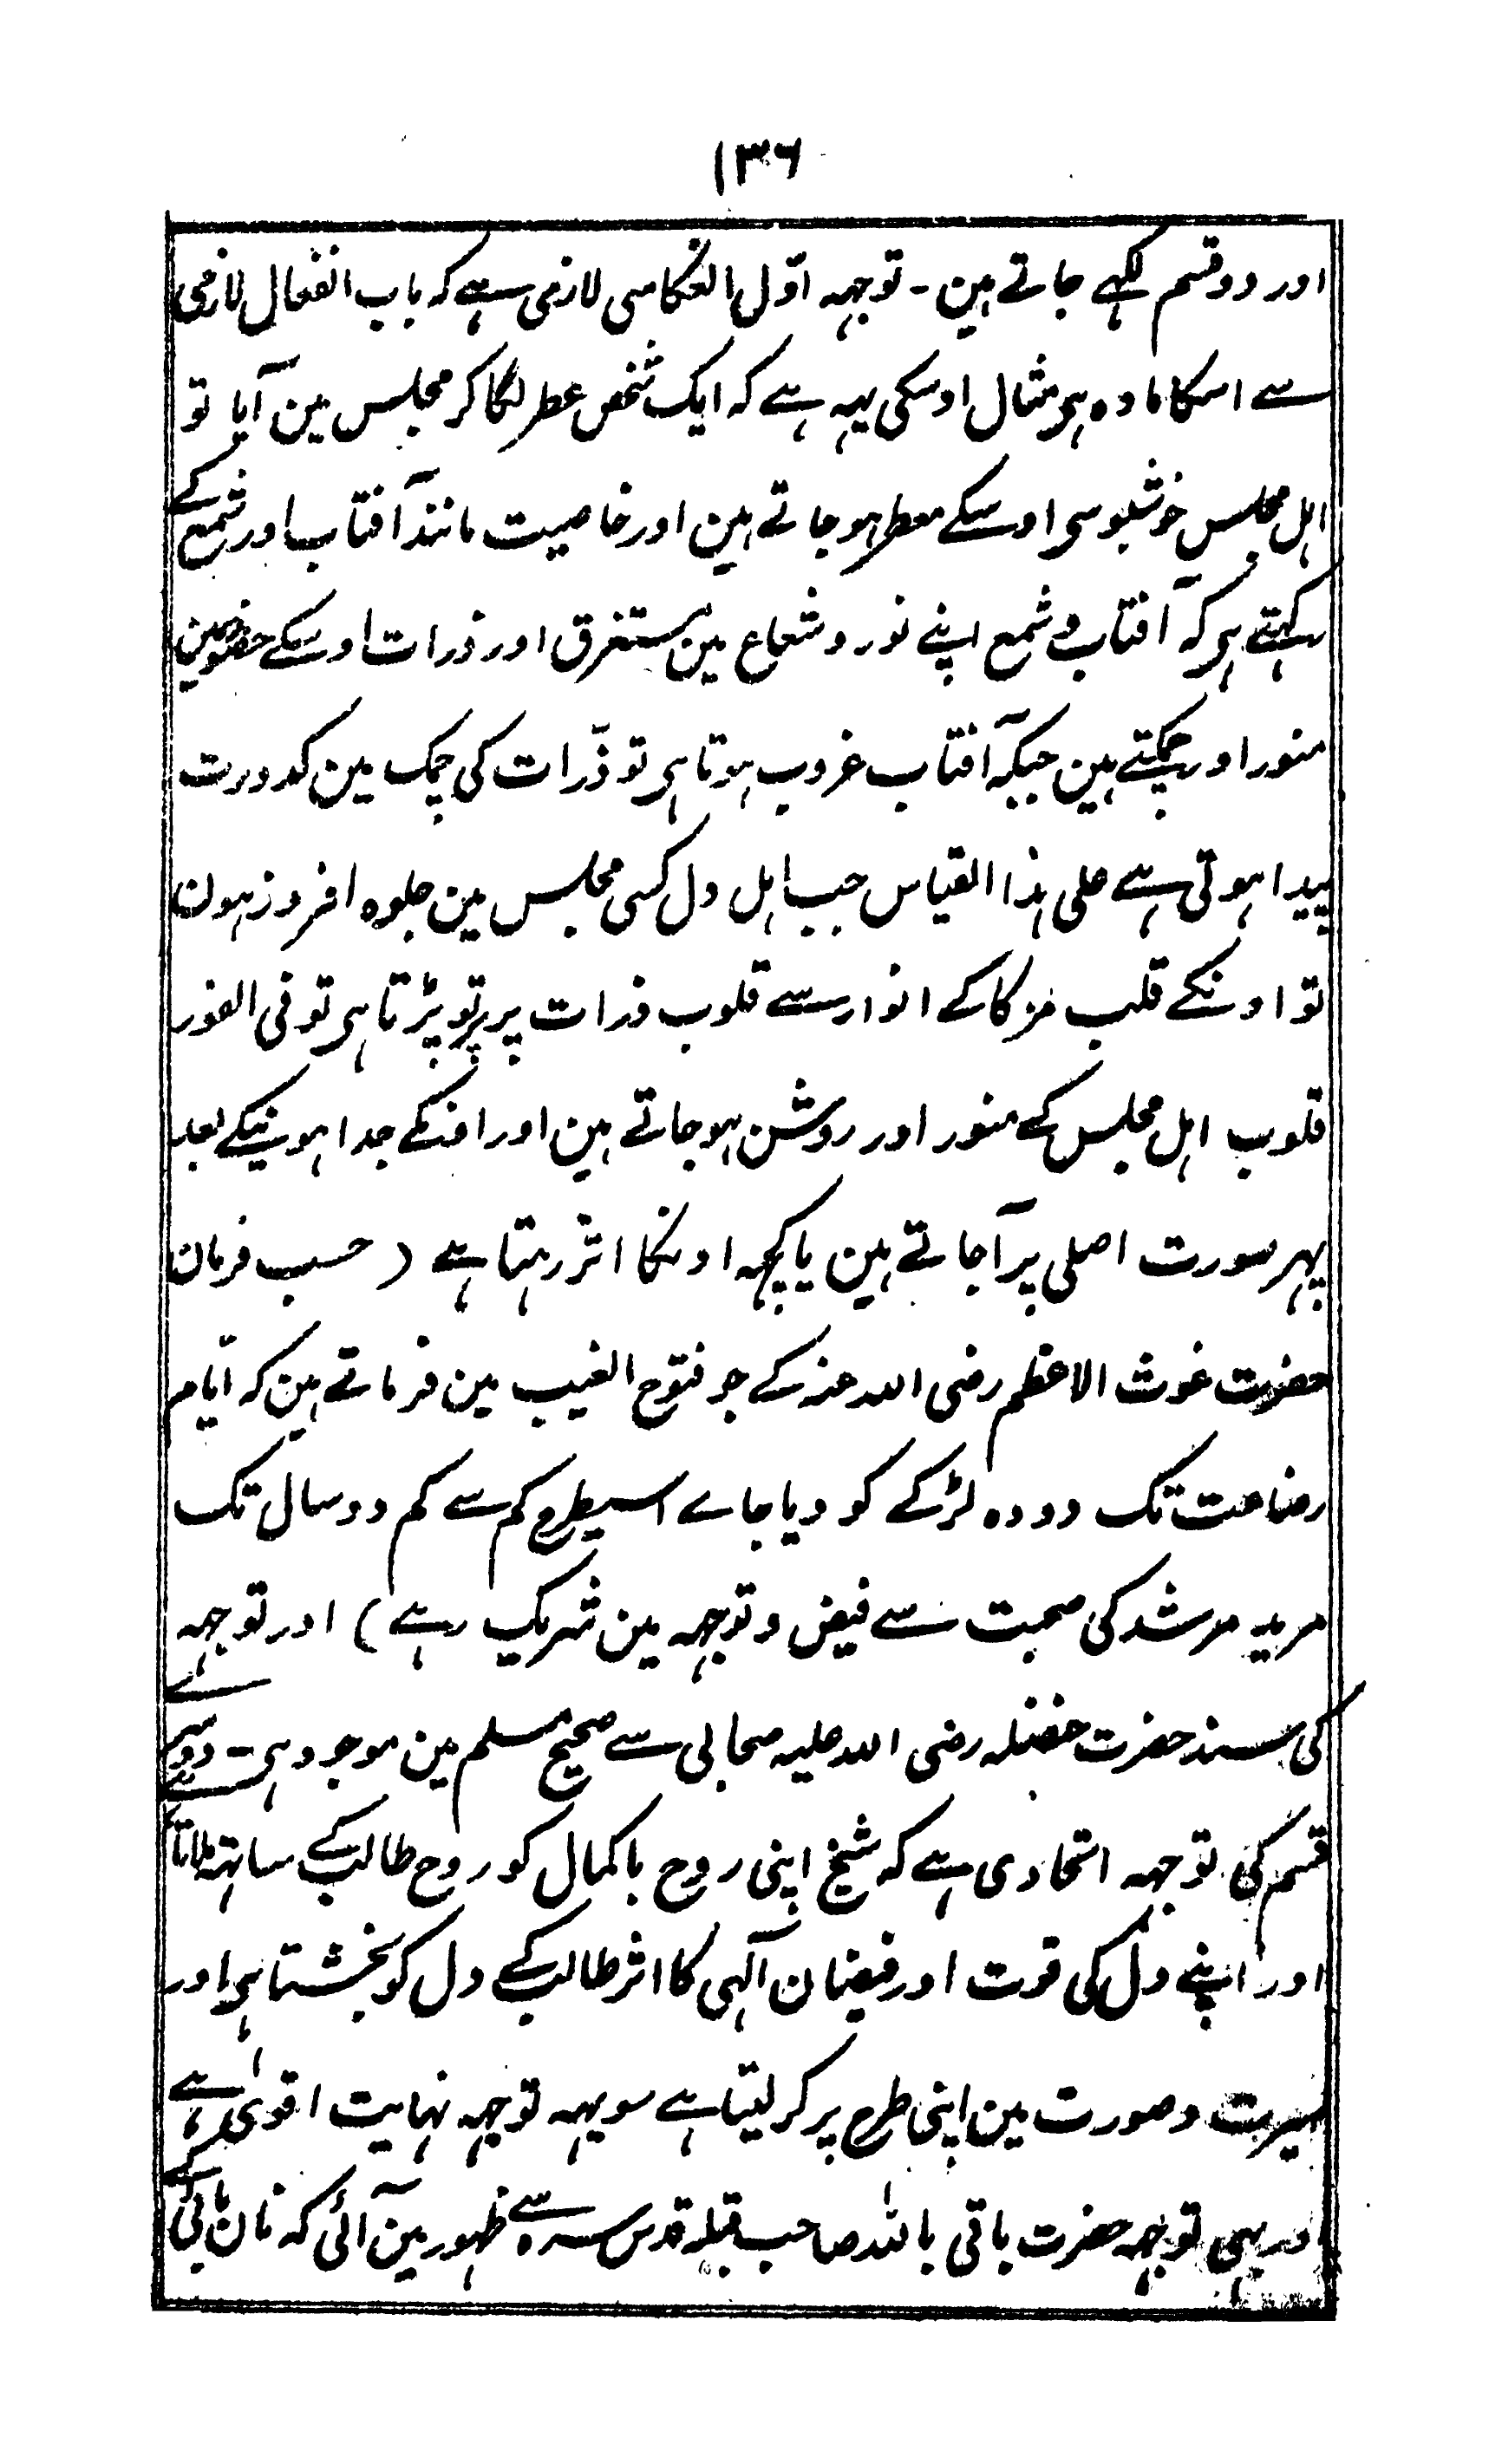 ۱۳۶
اور دو قسم لکہے جاتے ہین۔ توجہہ اوّل انعکاسی لازمی ہے کہ باب انفعال لازمی
سے اسکا مادہ ہی مثال اوسکی یہہ ہے کہ ایک شخص عطر لگا کر مجلس مین آیا تو
اہل مجلس خوشبوسی اوسکے معطر ہو جاتے ہین اور خاصیت مانند آفتاب اور شمع کے
رکہتے ہی کہ آفتاب و شمع اپنے نور و شعاع مین مستغرق اور ذرات اوسکے حضور مین
منور اور چمکتے ہین جبکہ آفتاب غروب ہوتا ہی تو ذرّات کی چمک مین کدورت
پیدا ہوتی ہے علی ہذا القیاس جب اہل دل کسی مجلس مین جلوہ افروز ہون
تو اونکے قلب مزکا کے انوار سے قلوب ذرات پر پرتو پڑتا ہی تو فی الفور
قلوب اہل مجلس کے منور اور روشن ہو جاتے ہین اور انکے جدا ہونیکے بعد
پہر صورت اصلی پر آجاتے ہین یا کچہہ اونکا اثر رہتا ہے ( حسب فرمان
حضرت غوث الاعظم رضی اللہ عنہ کے جو فتوح الغیب مین فرماتے ہین کہ ایّام
رضاعت تک دودہ لڑکے کو دیا جاے اسیطرح کم سے کم دو سال تک
مرید مرشد کی صحبت سے فیض و توجہہ مین شریک رہے ) اور توجہہ
کی سند حضرت حضنلہ رضی اللہ علیہ صحابی سے صحیح مسلم مین موجود ہی۔ دوسرے
قسم کی توجہہ اتحادی ہے کہ شیخ اپنی روح باکمال کو روح طالب کے ساتہہ ملاتا
اور اپنے دل کی قوت اور فیضان آلہی کا اثر طالب کے دل کو بخشتا ہی اور
سیرت و صورت مین اپنی طرح پر کر لیتا ہے سو یہہ توجہہ نہایت اقویٰ ہے
اور یہی توجہہ حضرت باقی باللہ صاحب قبلہ قدس سرہ سے ظہور مین آئی کہ نان بائی کے